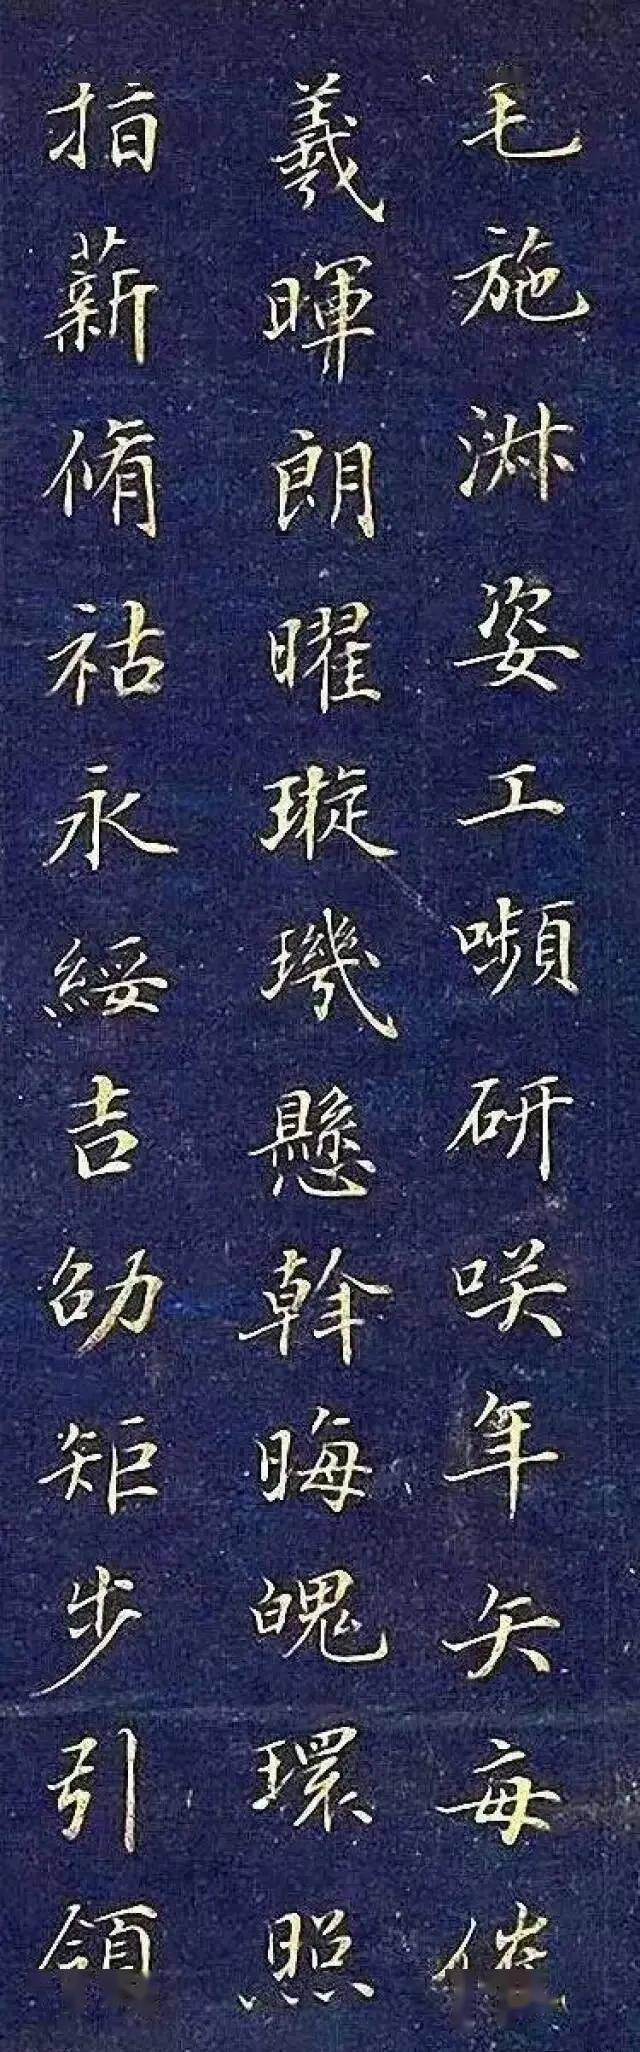 毛施淑姿工嚬研咲年矢每催
羲暉朗曜璇璣懸斡晦魄環照
指薪脩祜永綏吉劭矩步引領